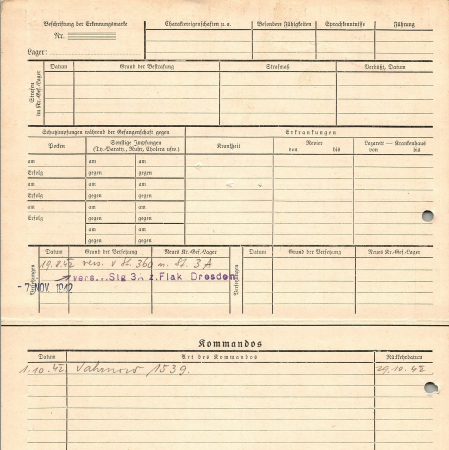 Beschriftung der Erkennungsmarke
Nr.
Lager:
Charaktereigenschaften u.a.
Besondere Fähigkeiten
Sprachkenntnisse
Führung
Strafen im Kr.-Gef.-Lager
Datum
Grund der Bestrafung
Strafmaß
Verbüßt, Datum
Schutzimpfungen während der Gefangenschaft gegen
Erkrankungen
Pocken
Sonstige Impfungen
(Ty.-Paraty., Ruhr, Cholera usw.)
Krankheit
Revier
von bis
Lazarett — Krankenhaus
von bis
am am am
Erfolg gegen gegen
am am am
Erfolg gegen gegen
am am am
Erfolg gegen gegen
am am am
Erfolg gegen gegen
am am
gegen gegen
Versetzungen
Datum
Grund der Versetzung
Neues Kr.-Gef.-Lager
Versetzungen
Datum
Grund der Versetzung
Neues Kr.-Gef.-Lager
19.8.42 vers. v St. 360 n. St. 3 A
vers... Stg 3A z. Flak Dresden
- 7. NOV. 1942
Kommandos
Datum
Art des Kommandos
Rückkehrdatum
1.10.42 1539. 29.10.42